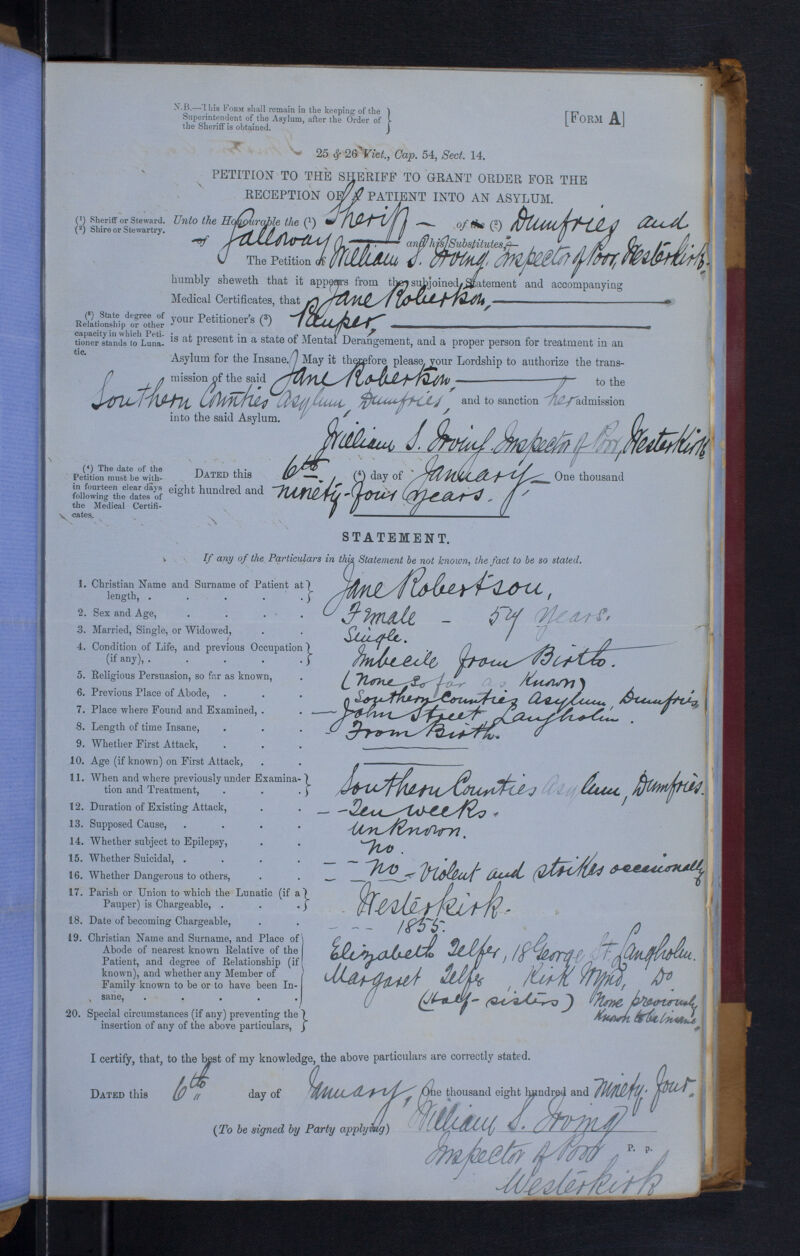 N.B.—This Form shall remain in the keeping of the
Superintendent of the Asylum, after the Order of
the Sheriff is obtained.
[Form A]
25 & 26 Vict., Cap. 54, Sect. 14.
PETITION TO THE SHERIFF TO GRANT ORDER FOR THE
RECEPTION OF A PATIENT INTO AN ASYLUM.
(1) Sheriff or Steward.
(2) Shire or Stewartry.
Unto the Honourable the (1) Sheriff — of the (2) Dumfries and
of Galloway — and his Substitutes,—
The Petition of William S. Irving Inspector of Poor, Westerkirk
humbly sheweth that it appears from the subjoined Statement and accompanying
Medical Certificates, that Jane Robertson, —
(3) State degree of
Relationship or other
capacity in which Peti-
tioner stands to Luna-
tic.
your Petitioner's (3) Pauper, —
is at present in a state of Mental Derangement, and a proper person for treatment in an
Asylum for the Insane. May it therefore please your Lordship to authorize the trans-
mission of the said Jane Robertson, — to the
Southern Counties Asylum, Dumfries, and to sanction her admission
into the said Asylum.
William S. Irving Inspector of Poor, Westerkirk
(4) The date of the
Petition must be with-
in fourteen clear days
following the dates of
the Medical Certifi-
cates.
Dated this 6th (4) day of January, — One thousand
eight hundred and ninety-four years.
STATEMENT.
If any of the Particulars in this Statement be not known, the fact to be so stated.
1. Christian Name and Surname of Patient at
length, . . . . . Jane Robertson,
2. Sex and Age, . . . . Female - 54 years.
3. Married, Single, or Widowed, . . Single.
4. Condition of Life, and previous Occupation
(if any), . . . . . Imbecile from Birth.
5. Religious Persuasion, so far as known, . (None so far as known)
6. Previous Place of Abode, . . . Southern Counties Asylum, Dumfries
7. Place where Found and Examined, . . — John Street Langholm.
8. Length of time Insane, . . . - From Birth.
9. Whether First Attack, . . . —
10. Age (if known) on First Attack, . . —
11. When and where previously under Examina-
tion and Treatment, . . . Southern Counties Asylum, Dumfries.
12. Duration of Existing Attack, . . — - Ten weeks.
13. Supposed Cause, . . . . unknown.
14. Whether subject to Epilepsy, . . no.
15. Whether Suicidal, . . . . — - no -
16. Whether Dangerous to others, . . — - Violent and strikes occasionally
17. Parish or Union to which the Lunatic (if a
Pauper) is Chargeable, . . . Westerkirk.
18. Date of becoming Chargeable, . . - - - 1855.
19. Christian Name and Surname, and Place of
Abode of nearest known Relative of the
Patient, and degree of Relationship (if
known), and whether any Member of
Family known to be or to have been In-
sane, . . . . . .
Elizabeth Telfer, 18 George St. Langholm.
Margaret Telfer, Kirk Wynd, Do
(Half-sisters) None previously
known to be insane.
20. Special circumstances (if any) preventing the
insertion of any of the above particulars,
I certify, that, to the best of my knowledge, the above particulars are correctly stated.
Dated this 6th day of January, One thousand eight hundred and ninety-four.
(To be signed by Party applying) William S. Irving
Inspector of Poor P. p.
Westerkirk